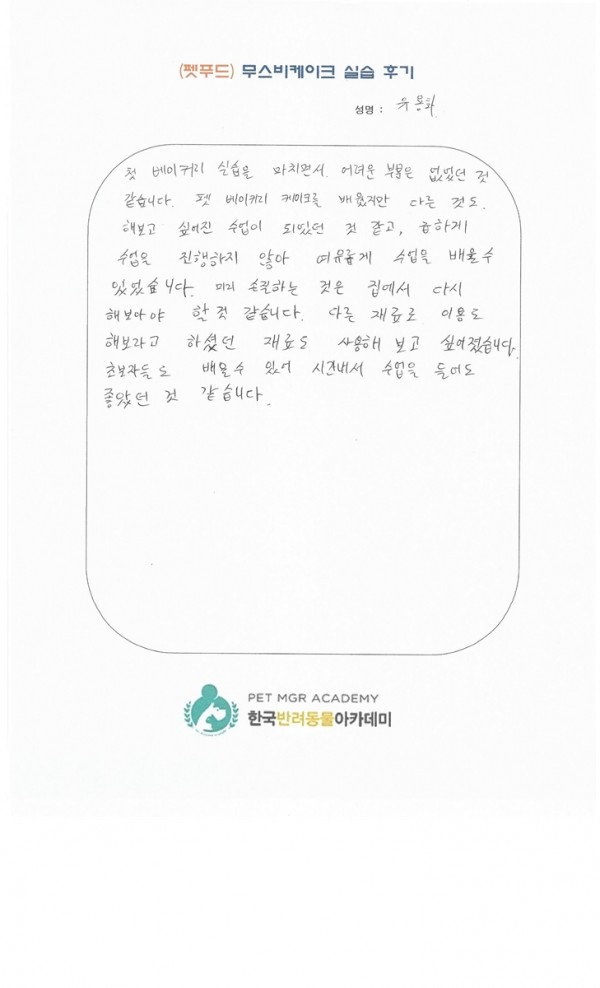 (펫푸드) 무스비케이크 실습 후기
성명 : 유
첫 베이커리 실습을 마치면서. 어려운 부분은 없었던 것
같습니다. 펫 베이커리 케이크를 배웠지만 다른 것도.
해보고 싶어진 수업이 되었던 것 같고, 급하게
수업을 진행하지 않아 여유롭게 수업을 배울수
있었습니다. 미리 손질하는 것은 집에서 다시
해보아야 할것 같습니다. 다른 재료로 이용도
해보라고 하셨던 재료도 사용해 보고 싶어졌습니다.
초보자들도 배울수 있어 시간내서 수업을 들어도
좋았던 것 같습니다.
PET MGR ACADEMY
한국반려동물아카데미